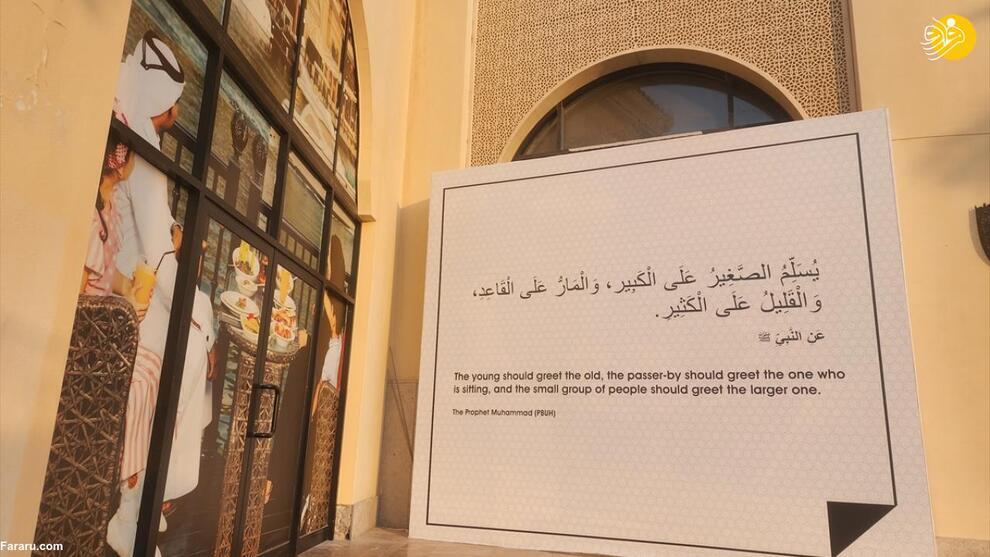 يُسَلِّمُ الصَّغِيرُ عَلَى الْكَبِيرِ، وَالْمَارُّ عَلَى الْقَاعِدِ،
وَالْقَلِيلُ عَلَى الْكَثِيرِ.
عَن النَّبِيِّ ﷺ
The young should greet the old, the passer-by should greet the one who
is sitting, and the small group of people should greet the larger one.
The Prophet Muhammad (PBUH)
Fararu.com